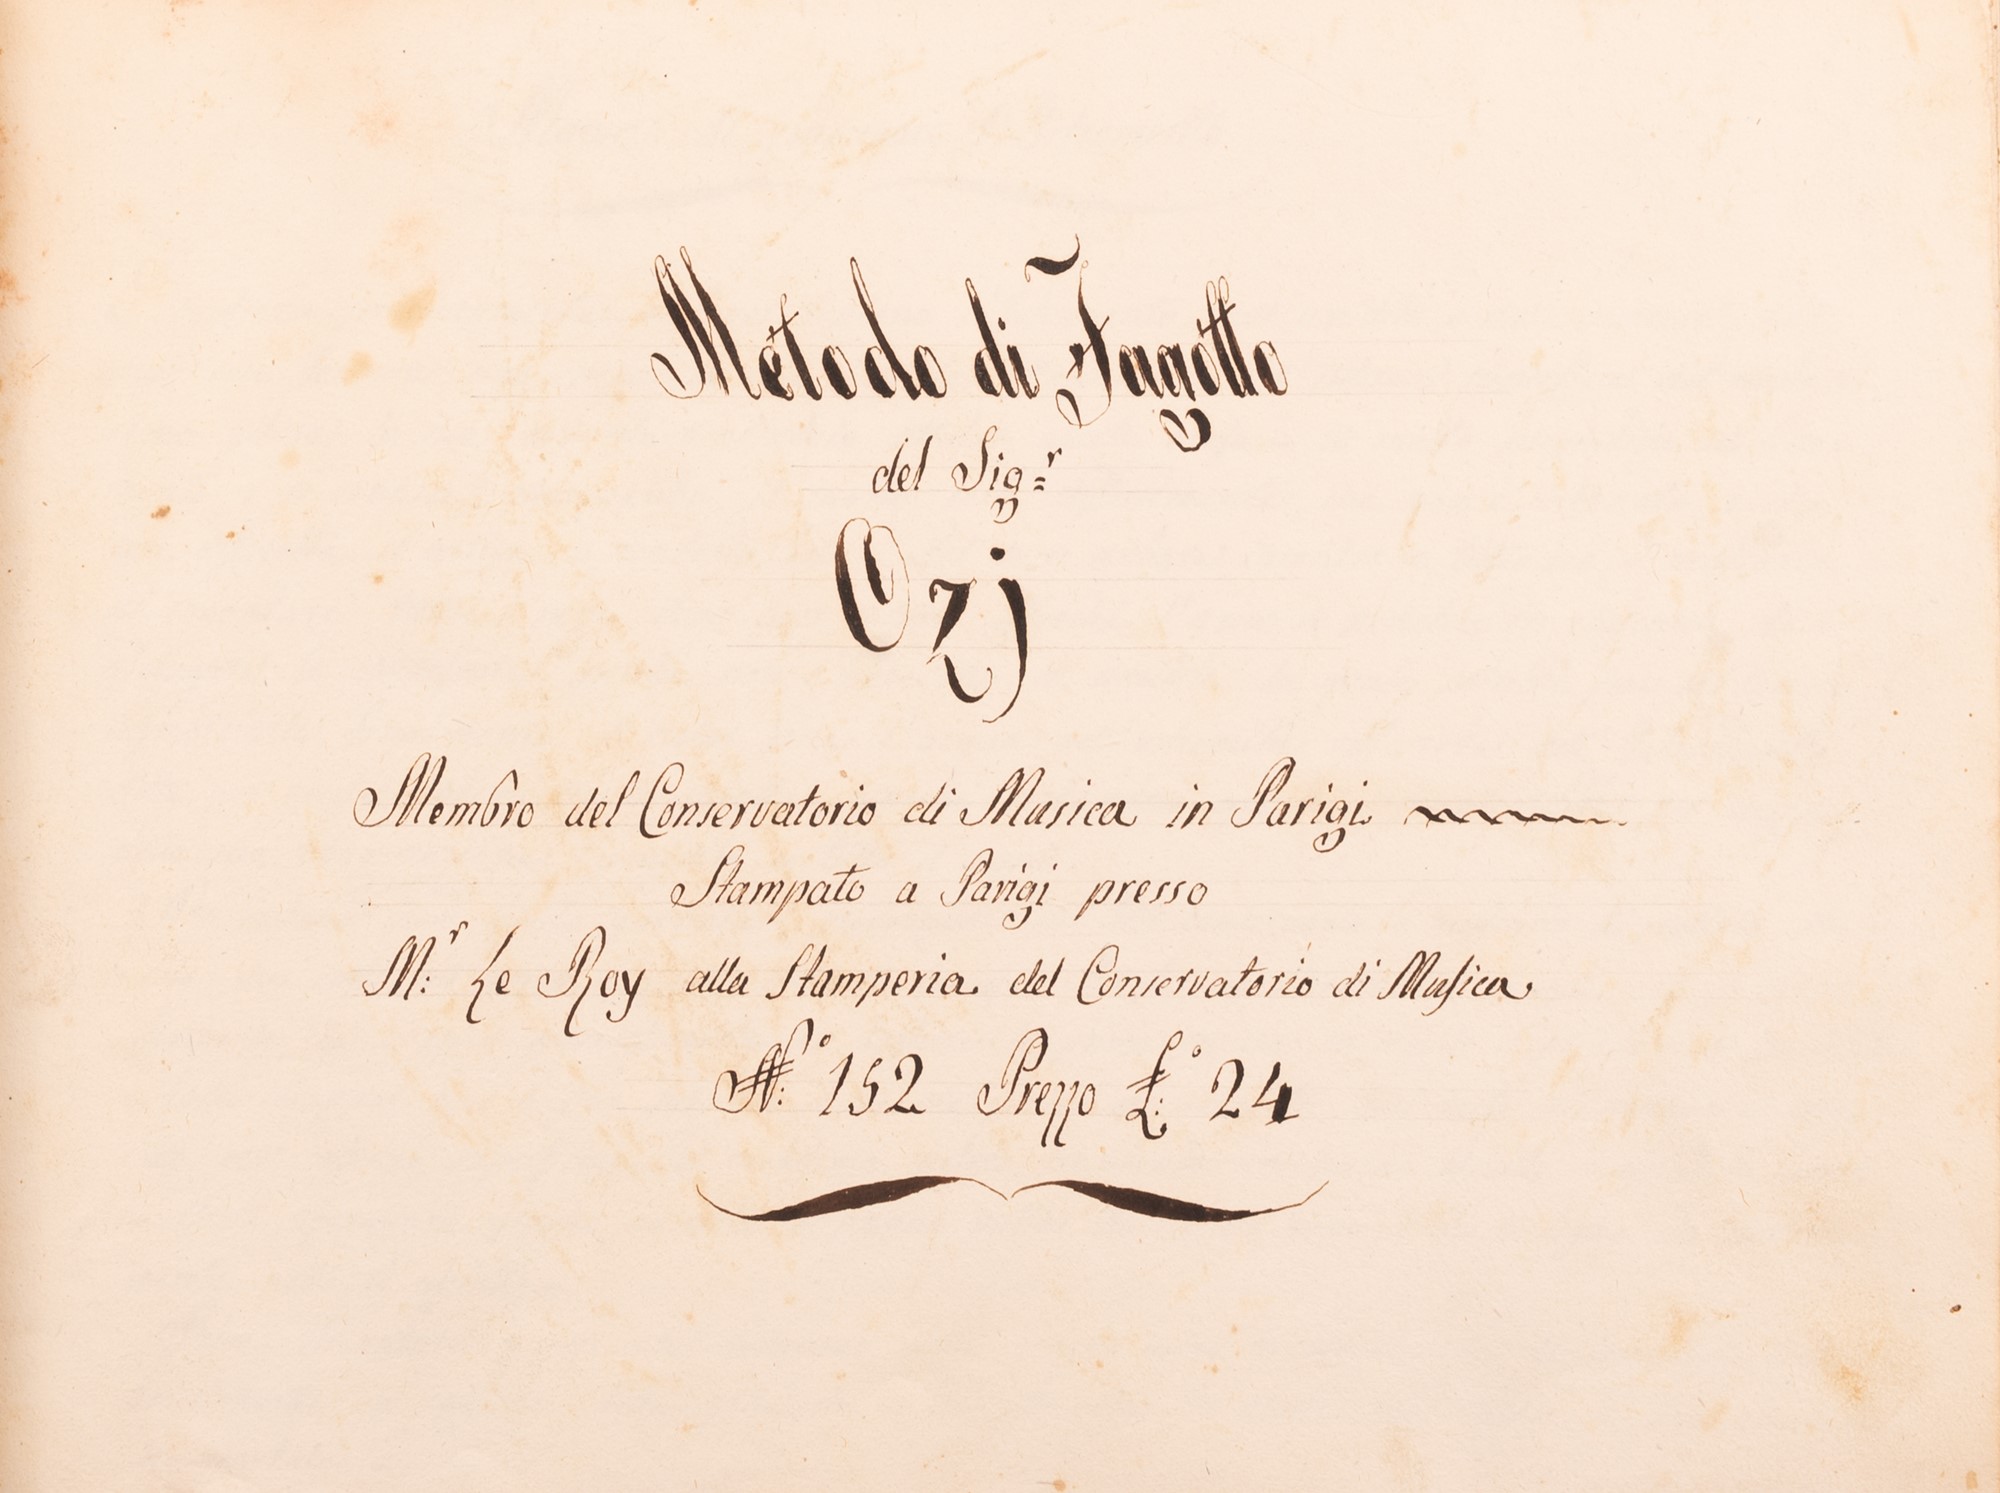 Metodo di Fagotto
del Sigr
Ozj
Membro del Conservatorio di Musica in Parigi
Stampato a Parigi presso
M:r Le Roy alla Stamperia del Conservatorio di Musica
N:o 152 Prezzo £:o 24